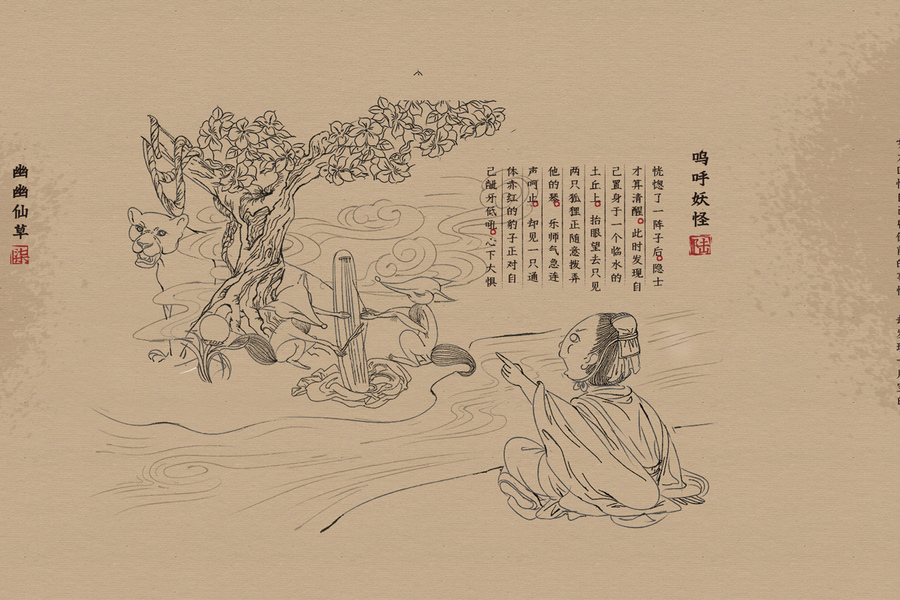 呜呼妖怪
陆
恍惚了一阵子后。隐士
才算清醒。此时发现自
己置身于一个临水的
土丘上。抬眼望去只见
两只狐狸正随意拨弄
他的琴。乐师气急连
声呵止。却见一只通
体赤红的豹子正对自
己龇牙低吼。心下大惧
幽幽仙草
柒